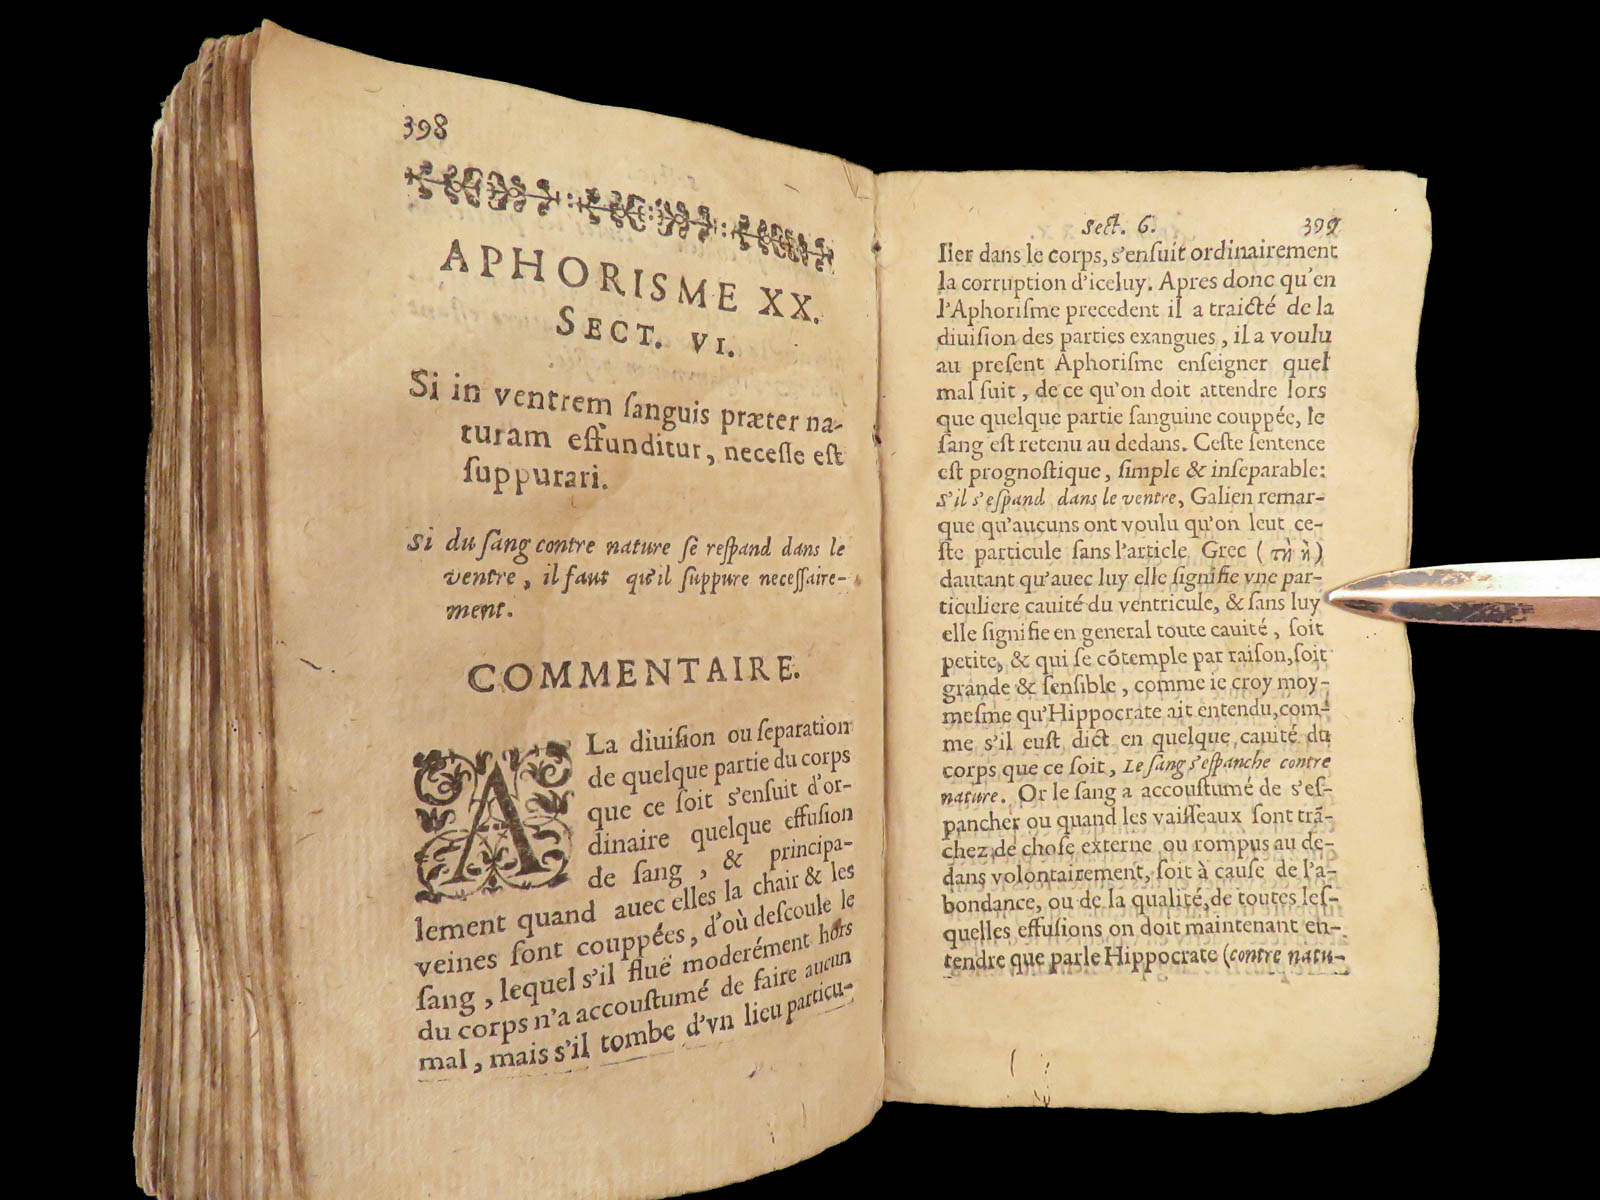 398
APHORISME XX.
SECT. VI.
Si in ventrem ſanguis præter na-
turam effunditur, neceſſe eſt
ſuppurari.
Si du ſang contre nature ſe reſpand dans le
ventre, il faut qu'il ſuppure neceſſaire-
ment.
COMMENTAIRE.
A La diuiſion ou ſeparation
de quelque partie du corps
que ce ſoit s'enſuit d'or-
dinaire quelque effuſion
de ſang, & principa-
lement quand auec elles la chair & les
veines ſont couppées, d'où deſcoule le
ſang, lequel s'il fluë moderément hors
du corps n'a accouſtumé de faire aucun
mal, mais s'il tombe d'vn lieu particu-
Sect. 6. 399
lier dans le corps, s'enſuit ordinairement
la corruption d'iceluy. Apres donc qu'en
l'Aphoriſme precedent il a traicté de la
diuiſion des parties exangues, il a voulu
au preſent Aphoriſme enſeigner quel
mal ſuit, de ce qu'on doit attendre lors
que quelque partie ſanguine couppée, le
ſang eſt retenu au dedans. Ceſte ſentence
eſt prognoſtique, ſimple & inſeparable:
S'il s'eſpand dans le ventre, Galien remar-
que qu'aucuns ont voulu qu'on leut ce-
ſte particule ſans l'article Grec (τὴ ἢ)
dautant qu'auec luy elle ſignifie vne par-
ticuliere cauité du ventricule, & ſans luy
elle ſignifie en general toute cauité, ſoit
petite, & qui ſe cõtemple par raiſon, ſoit
grande & ſenſible, comme ie croy moy-
meſme qu'Hippocrate ait entendu, com-
me s'il euſt dict en quelque cauité du
corps que ce ſoit, Le ſang s'eſpanche contre
nature. Or le ſang a accouſtumé de s'eſ-
pancher ou quand les vaiſſeaux ſont trã-
chez de choſe externe ou rompus au de-
dans volontairement, ſoit à cauſe de l'a-
bondance, ou de la qualité, de toutes leſ-
quelles effuſions on doit maintenant en-
tendre que parle Hippocrate (contre natu-